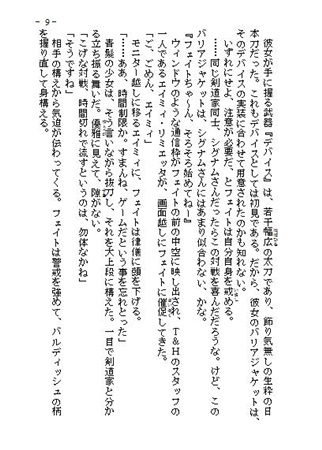 - 9 -
彼女が手に握る武器『デバイス』は、若干幅広の太刀であり、飾り気無しの生粋の日
本刀だった。これもデバイスとしては初見である。だから、彼女のバリアジャケットは、
そのデバイスの実装に合わせて用意されたのかも知れない。
いずれにせよ、注意が必要だ、とフェイトは自分自身を戒める。
……同じ剣道家同士、シグナムさんだったらこの対戦を喜んだだろうな。けど、この
バリアジャケットは、シグナムさんにはあまり似合わない、かな。
『フェイトちゃ～ん、そろそろ始めてね～』
ウィンドウのような通信枠がフェイトの前の中空に映し出され、T&Hのスタッフの
一人であるエイミィ・リミエッタが、画面越しにフェイトに催促してきた。
「ご、ごめん、エイミィ」
モニター越しに移るエイミィに、フェイトは律儀に頭を下げる。
「……ああ、時間制限か。すまんね、ゲームだという事を忘れとった」
青髪の少女は、そう言いながら抜刀し、それを大上段に構えた。一目で剣道家と分か
る立ち振る舞いだ。優雅に見えて、隙がない。
「こげな対戦、時間切れで流すというのは、勿体なかね」
「そうですね」
相手の構えから気迫が伝わってくる。フェイトは警戒を強めて、バルディッシュの柄
を握り直して身構える。